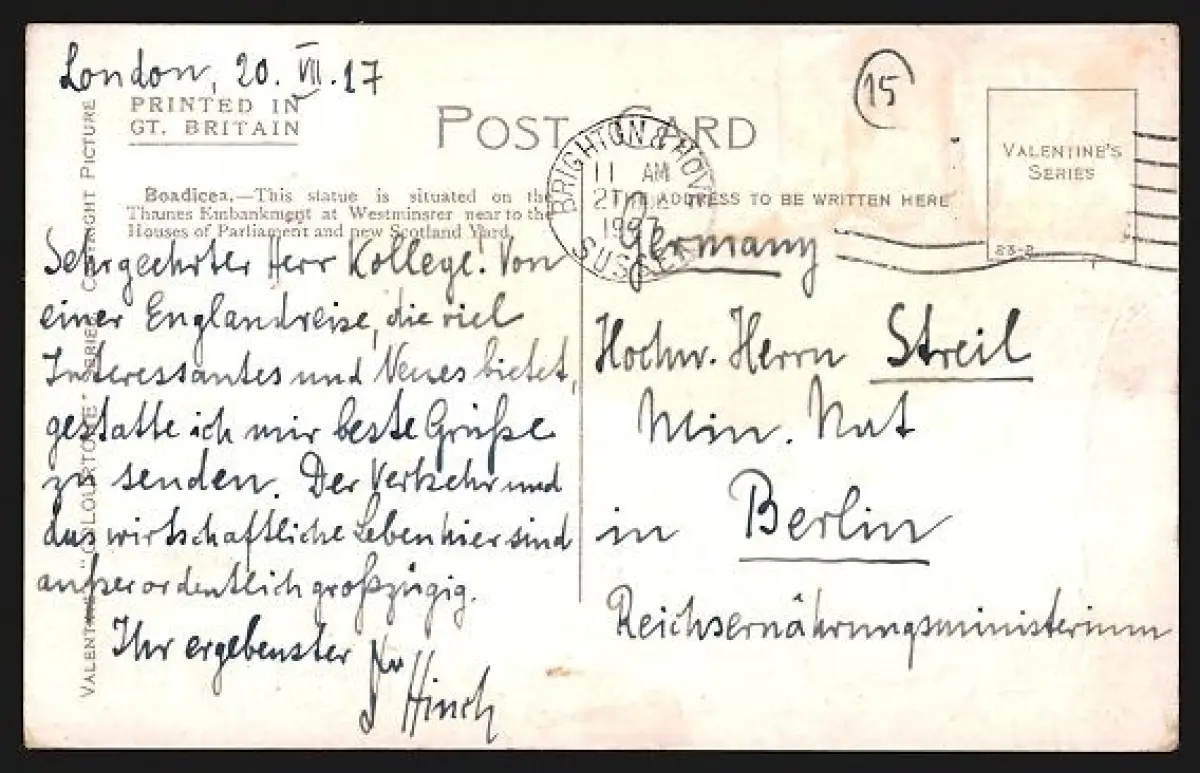 London, 20. VII. 27
PRINTED IN
GT. BRITAIN
POST CARD
15
VALENTINE'S
SERIES
83-2
BRIGHTON & HOVE
11 AM
1927
SUSSEX
Boadicea.—This statue is situated on the
Thames Embankment at Westminster near to the
Houses of Parliament and new Scotland Yard.
THE ADDRESS TO BE WRITTEN HERE
Sehr geehrter Herr Kollege! Von
einer Englandreise, die viel
Interessantes und Neues bietet,
gestatte ich mir beste Grüße
zu senden. Der Verkehr und
das wirtschaftliche Leben hier sind
außerordentlich großzügig.
Ihr ergebenster
Hinch
Germany
Hochw. Herrn Streil
Min. Rat
in Berlin
Reichsernährungsministerium
VALENTINE'S "COLOURTONE" SERIES COPYRIGHT PICTURE